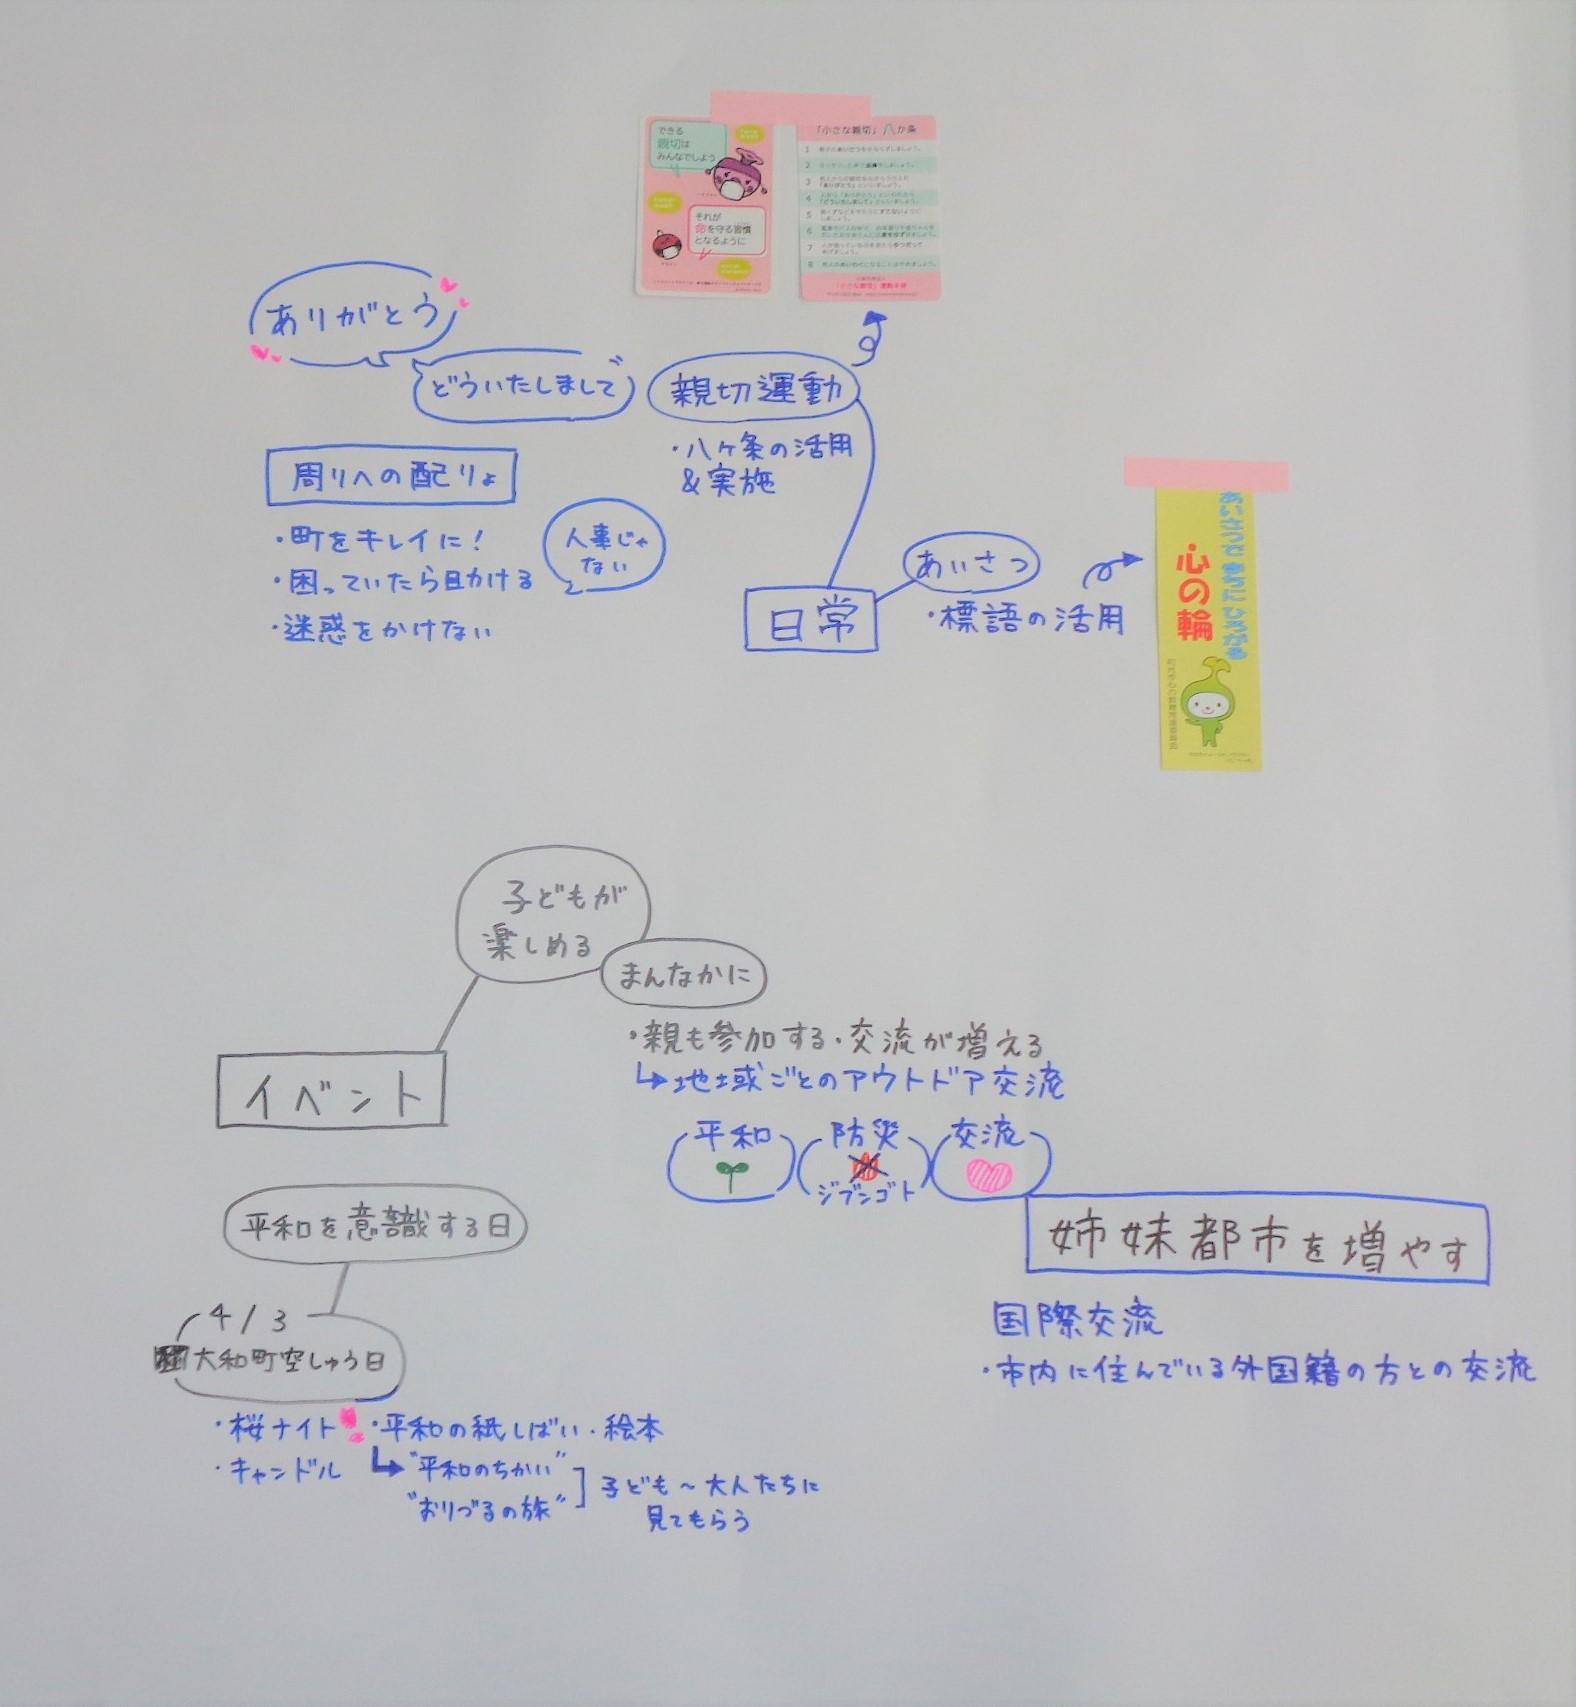 できる
親切は
みんなでしよう
それが
命を守る習慣
となるように
「小さな親切」八か条
1
2
3
「ありがとう」といいましょう。
4
「どういたしまして」といいましょう。
5
6
7
8
「小さな親切」運動本部
ありがとう
どういたしまして
親切運動
・八ヶ条の活用
&実施
周りへの配りょ
・町をキレイに!
・困っていたら目かける
・迷惑をかけない
人事じゃ
ない
日常
あいさつ
・標語の活用
あいさつで まちに ひろがる
心の輪
子どもが
楽しめる
まんなかに
・親も参加する・交流が増える
↳地域ごとのアウトドア交流
イベント
平和
防災
ジブンゴト
交流
姉妹都市を増やす
国際交流
・市内に住んでいる外国籍の方との交流
平和を意識する日
4/3
大和町空しゅう日
・桜ナイト
・キャンドル
・平和の紙しばい・絵本
↳"平和のちかい"
"おりづるの旅"
子ども~大人たちに
見てもらう